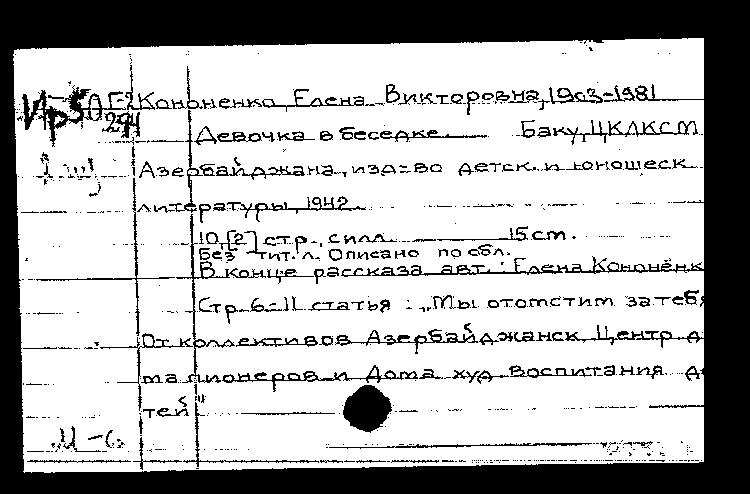 Ир50 Г-2 Кононенко, Елена Викторовна, 1903-1981
294
Девочка в беседке. Баку, ЦКЛКСМ
Азербайджана, изд-во детск. и юношеск
литературы, 1942.
10,[2] стр., с илл. 15 cm.
Без тит. л. Описано по обл.
В конце рассказа авт.: Елена Кононенк
Стр. 6-11 статья: „Мы отомстим за тебя
От коллективов Азербайджанск. Центр. д
ма пионеров и Дома худ. воспитания де
тей"
М-6